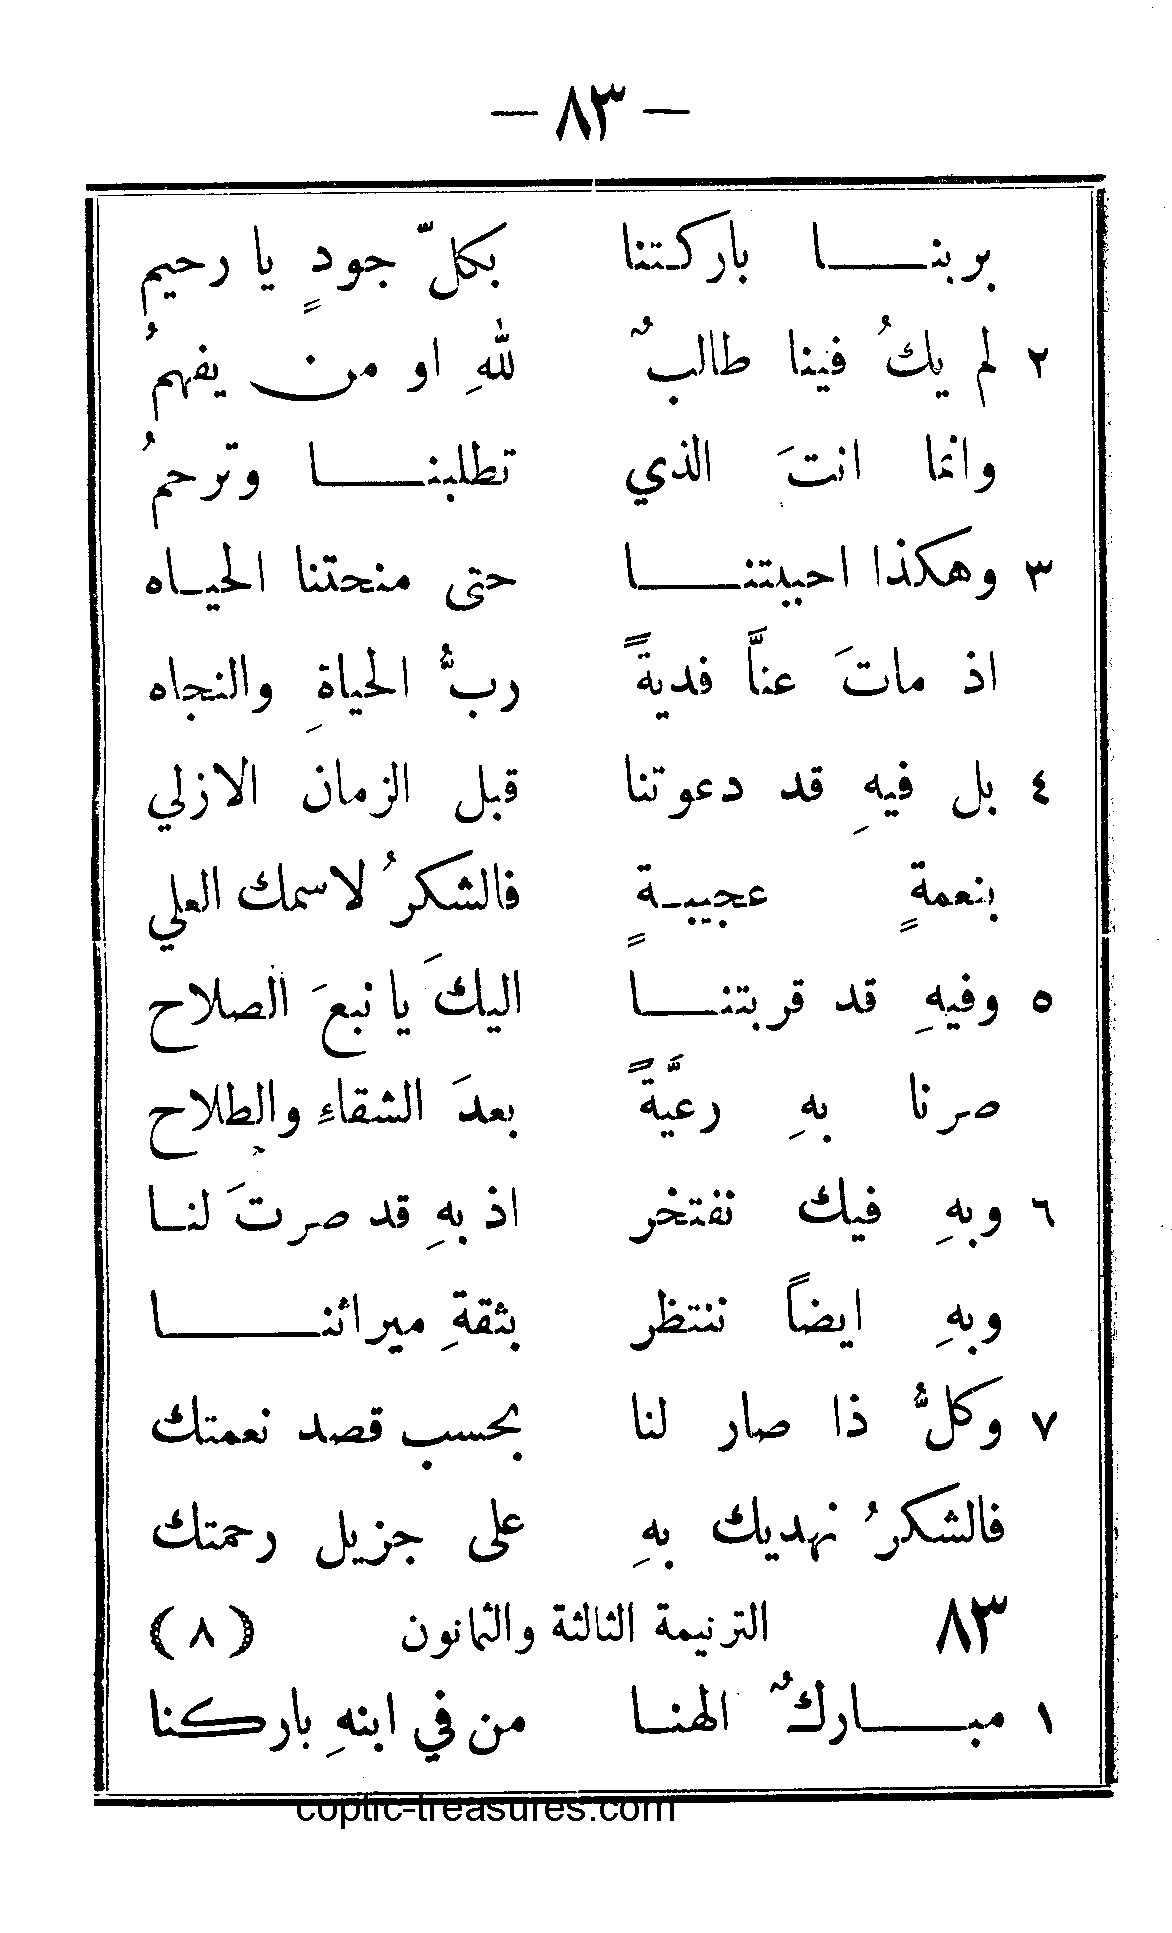 — ٨٣ —
بربنـــــا باركتنا بكلّ جودٍ يا رحيم
٢ لم يكُ فينا طالبٌ للهِ او من يفهمُ
وانما انتَ الذي تطلبنـــــا وترحمُ
٣ وهكذا احييتنـــــا حتى منحتنا الحيـاه
اذ ماتَ عنَّا فديةً ربُّ الحياةِ والنجاه
٤ بل فيهِ قد دعوتنا قبل الزمان الازلي
بنعمةٍ عجيبـةٍ فالشكرُ لاسمك العلي
٥ وفيهِ قد قربتنـــا اليكَ يا نبعَ الصلاح
صرنا بهِ رعيَّةً بعدَ الشقاءِ والطلاح
٦ وبهِ فيك نفتخر اذ بهِ قد صرتَ لنـا
وبهِ ايضاً ننتظر بثقةِ ميراثنـــــا
٧ وكلُّ ذا صار لنا بحسب قصد نعمتك
فالشكرُ نهديك بهِ على جزيل رحمتك
٨٣ الترنيمة الثالثة والثمانون (٨)
١ مبـــاركٌ الهنـا من في ابنهِ باركنا
coptic-treasures.com